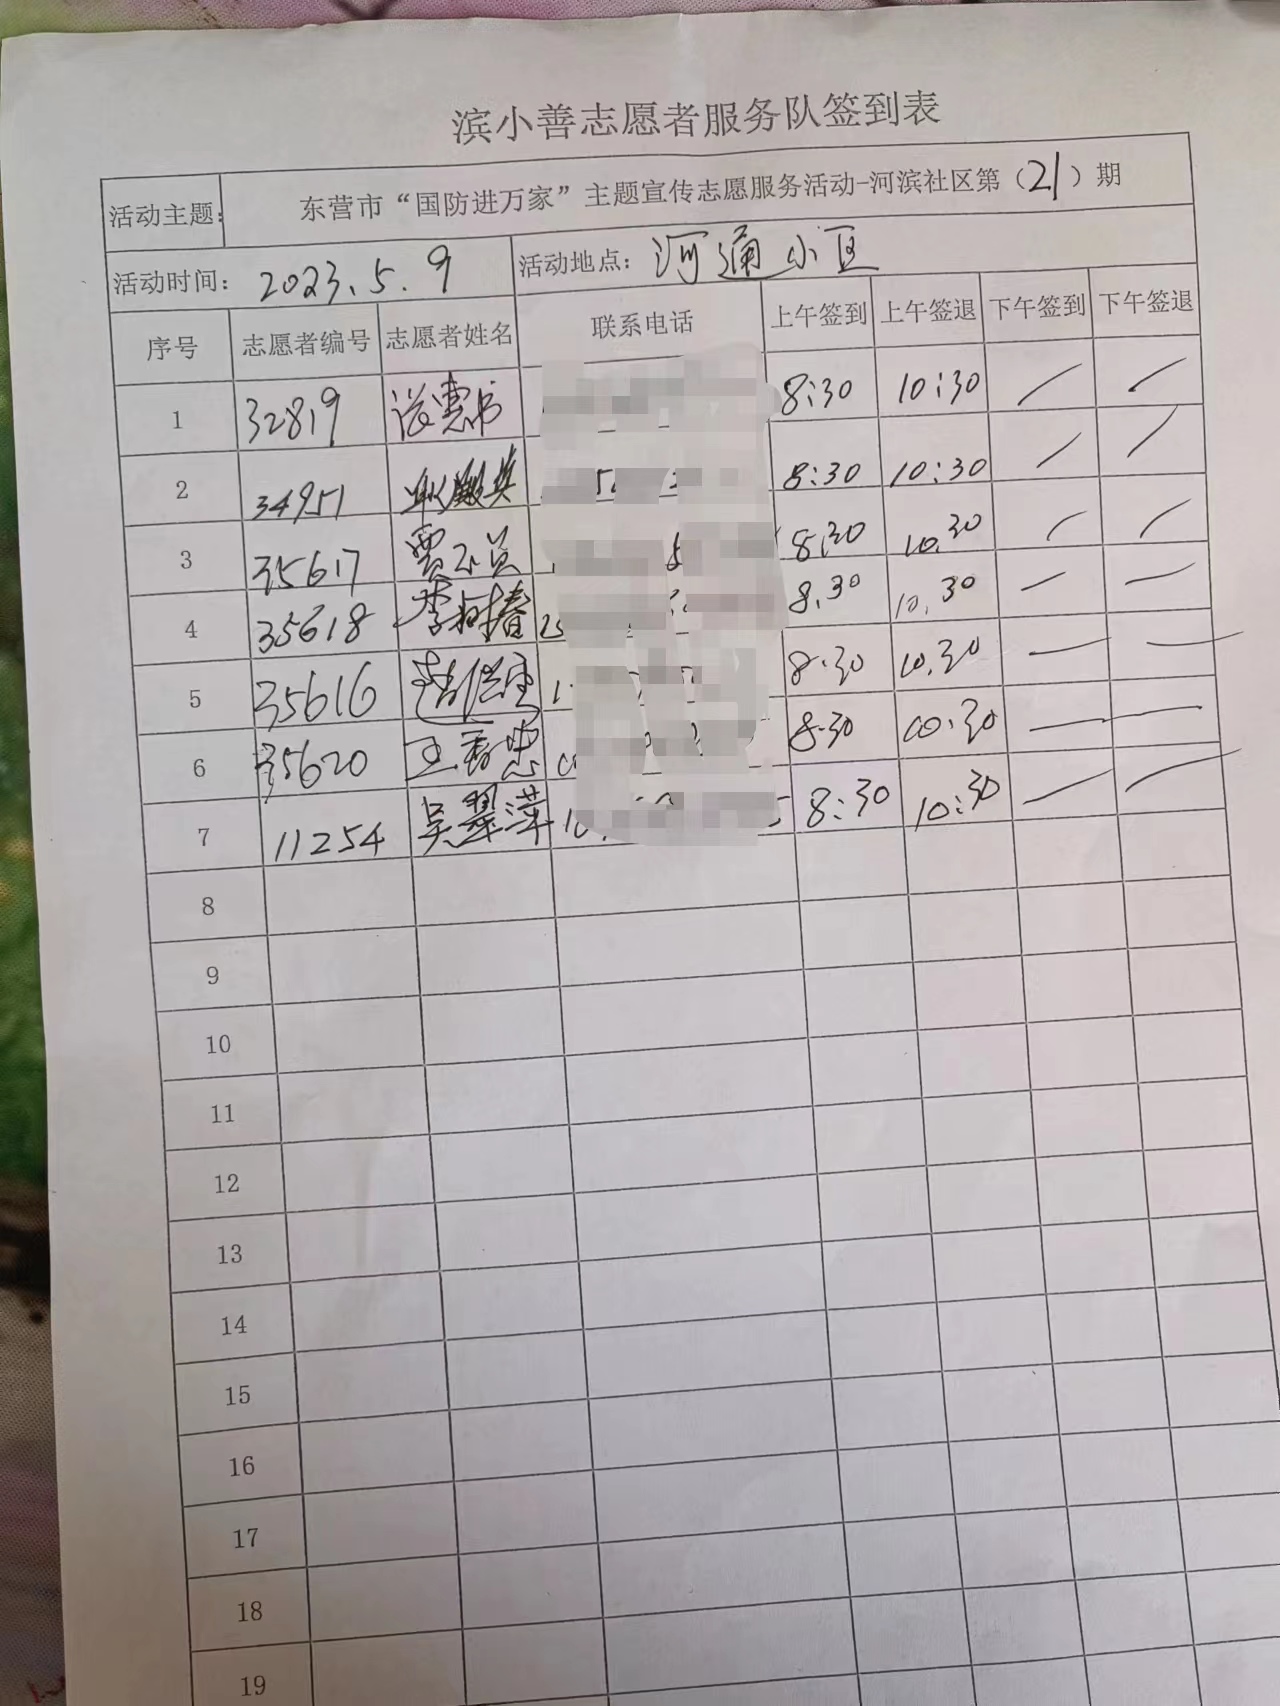 滨小善志愿者服务队签到表
活动主题: 东营市“国防进万家”主题宣传志愿服务活动-河滨社区第（21）期
活动时间: 2023.5.9 活动地点: 河通小区
序号 志愿者编号 志愿者姓名 联系电话 上午签到 上午签退 下午签到 下午签退
1 32819 8:30 10:30 / /
2 34951 8:30 10:30 / /
3 35617 8:30 10.30 / /
4 35618 李树春 8.30 10.30 — —
5 35616 8.30 10.30 — —
6 35620 8.30 10.30 — —
7 11254 吴翠萍 8:30 10:30 / /
8
9
10
11
12
13
14
15
16
17
18
19